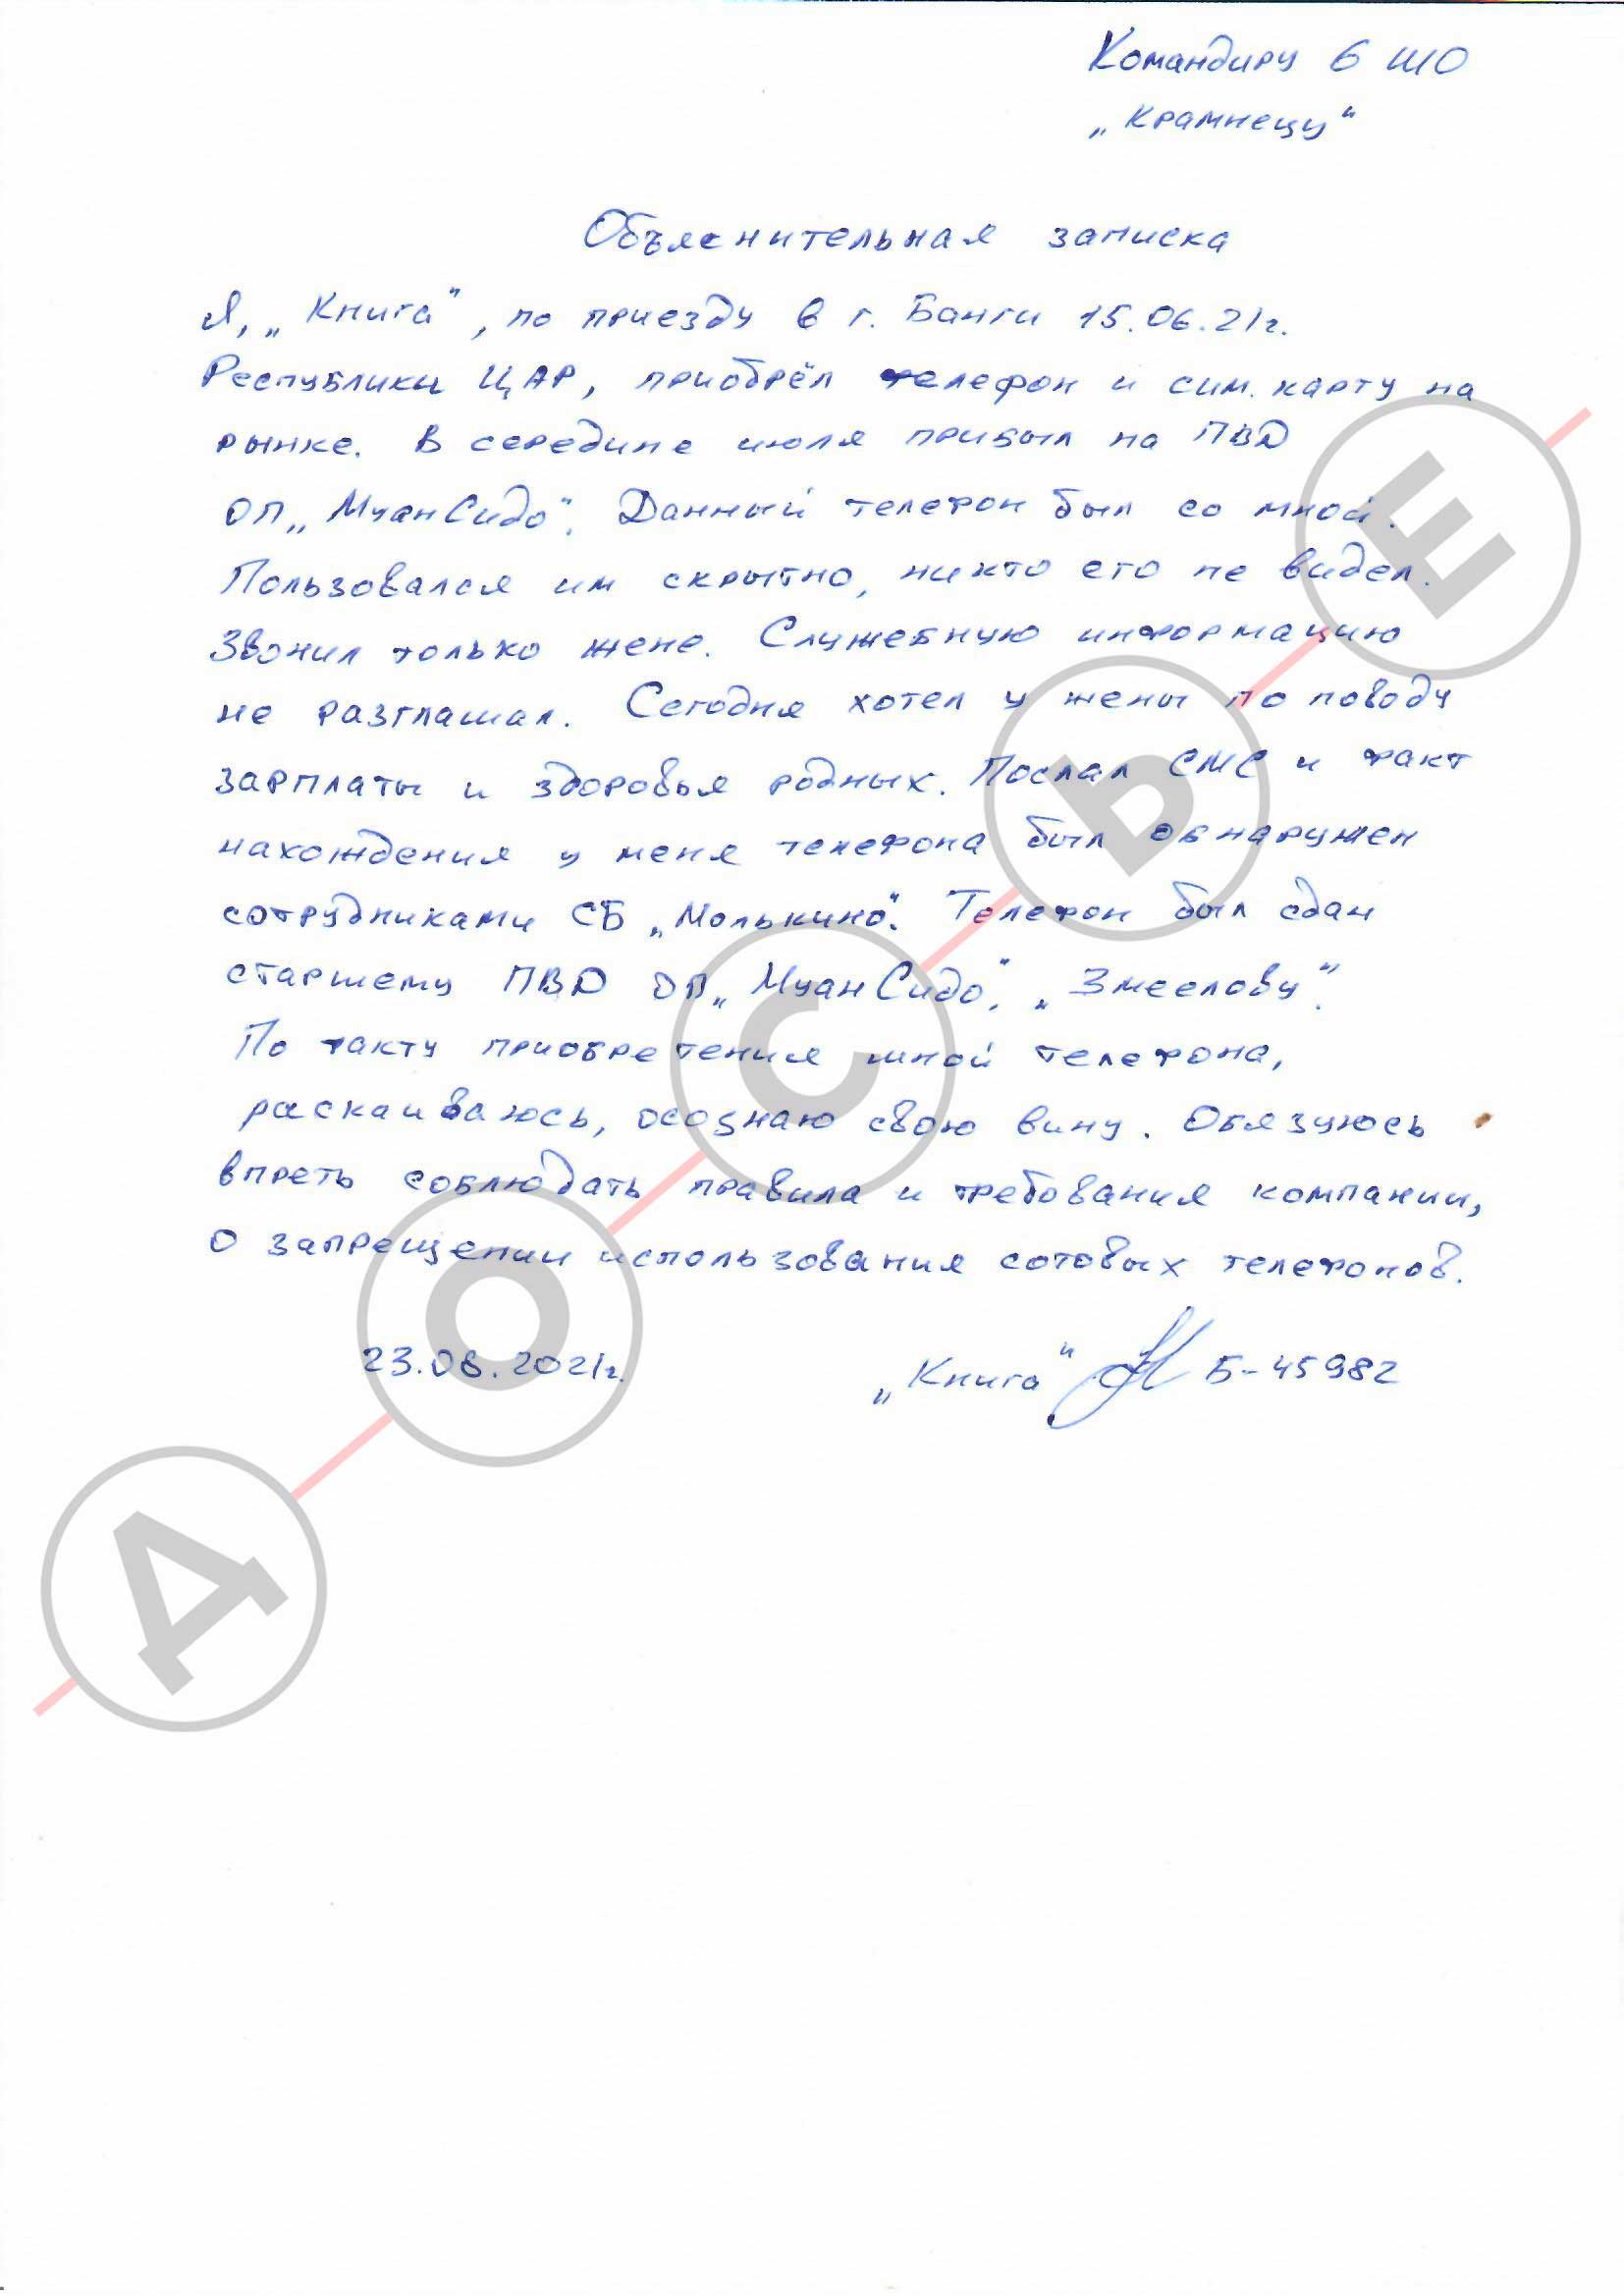 Командиру 6 ШО
„Крамнецу“
Объяснительная записка
Я, „Книга“, по приезду в г. Банги 15.06.21г.
Республики ЦАР, приобрёл телефон и сим. карту на
рынке. В середине июля прибыл на ПВД
ОП „МуанСидо“. Данный телефон был со мной.
Пользовался им скрытно, никто его не видел.
Звонил только жене. Служебную информацию
не разглашал. Сегодня хотел у жены по поводу
зарплаты и здоровья родных. Послал СМС и факт
нахождения у меня телефона был обнаружен
сотрудниками СБ „Молькино“. Телефон был сдан
старшему ПВД ОП „МуанСидо“, „Змеелову“.
По факту приобретения мной телефона,
раскаиваюсь, осознаю свою вину. Обязуюсь
впреть соблюдать правила и требования компании,
о запрещении использования сотовых телефонов.
23.08.2021г. „Книга“ Б-45982
ДОСЬЕ